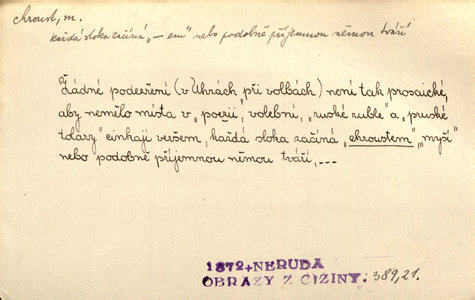 chroust, m.
každá sloka začíná „ – em" nebo podobně příjemnou němou tváří
Žádné podezření (v Uhrách „při volbách) není tak prosaické,
aby nemělo místa v „poezii„ volební, „ruské ruble" a „pruské
tolary" cinkají veršem, každá sloka začíná „chroustem" „myší"
nebo podobně příjemnou němou tváří, ---
1872 + NERUDA
OBRAZY Z CIZINY. 389,21.